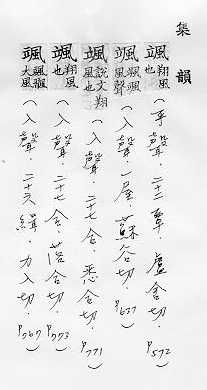 集韻
颯翔風也(平聲.二十二覃.盧含切.P572)
颯颯颯風聲(入聲.一屋.蘇谷切.P637)
颯說文翔風也(入聲.二十七合.悉合切.P771)
颯翔風也(入聲.二十七合.落合切.P773)
颯颯颯大風(入聲.二十六緝.力入切.P767)